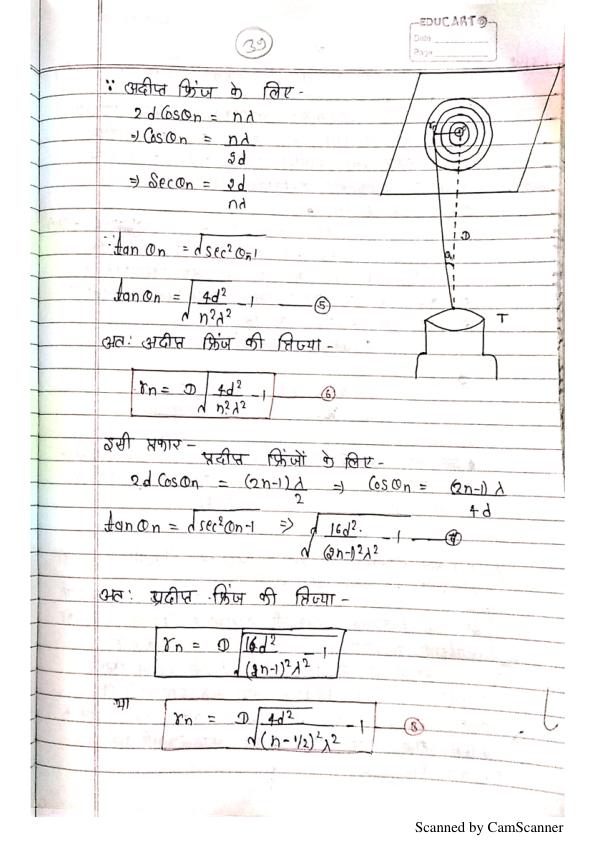 39
EDUCART
Date
Page
∵ अदीप्त फ्रिंज के लिए -
2dCosθn = nλ
⇒ Cosθn = nλ/2d
⇒ Secθn = 2d/nλ
∵ tanθn = √sec²θn-1
tanθn = √4d²/n²λ² - 1 —— ⑤
अतः अदीप्त फ्रिंज की त्रिज्या -
rn = D √4d²/n²λ² - 1 —— ⑥
इसी प्रकार - प्रदीप्त फ्रिंजों के लिए -
2dCosθn = (2n-1)λ/2 ⇒ Cosθn = (2n-1)λ/4d
tanθn = √sec²θn-1 ⇒ √16d²/(2n-1)²λ² - 1 —— ⑦
अतः प्रदीप्त फ्रिंज की त्रिज्या -
rn = D √16d²/(2n-1)²λ² - 1
या
rn = D √4d²/(n-1/2)²λ² - 1 —— ⑧
D
T
Scanned by CamScanner